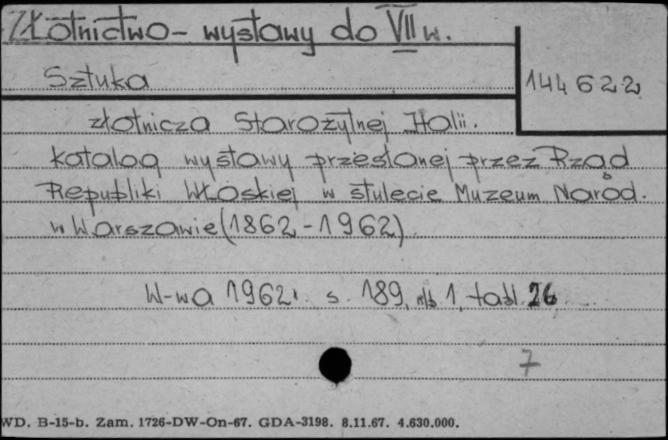 Złotnictwo - wystawy do VII w.
Sztuka
144622
złotnicza Starożytnej Italii.
Katalog wystawy przesłanej przez Rząd
Republiki Włoskiej w stulecie Muzeum Narod.
w Warszawie (1862-1962)
W-wa 1962. s. 189, nlb 1, tabl. 26
7
WD. B-15-b. Zam. 1726-DW-On-67. GDA-3198. 8.11.67. 4.630.000.